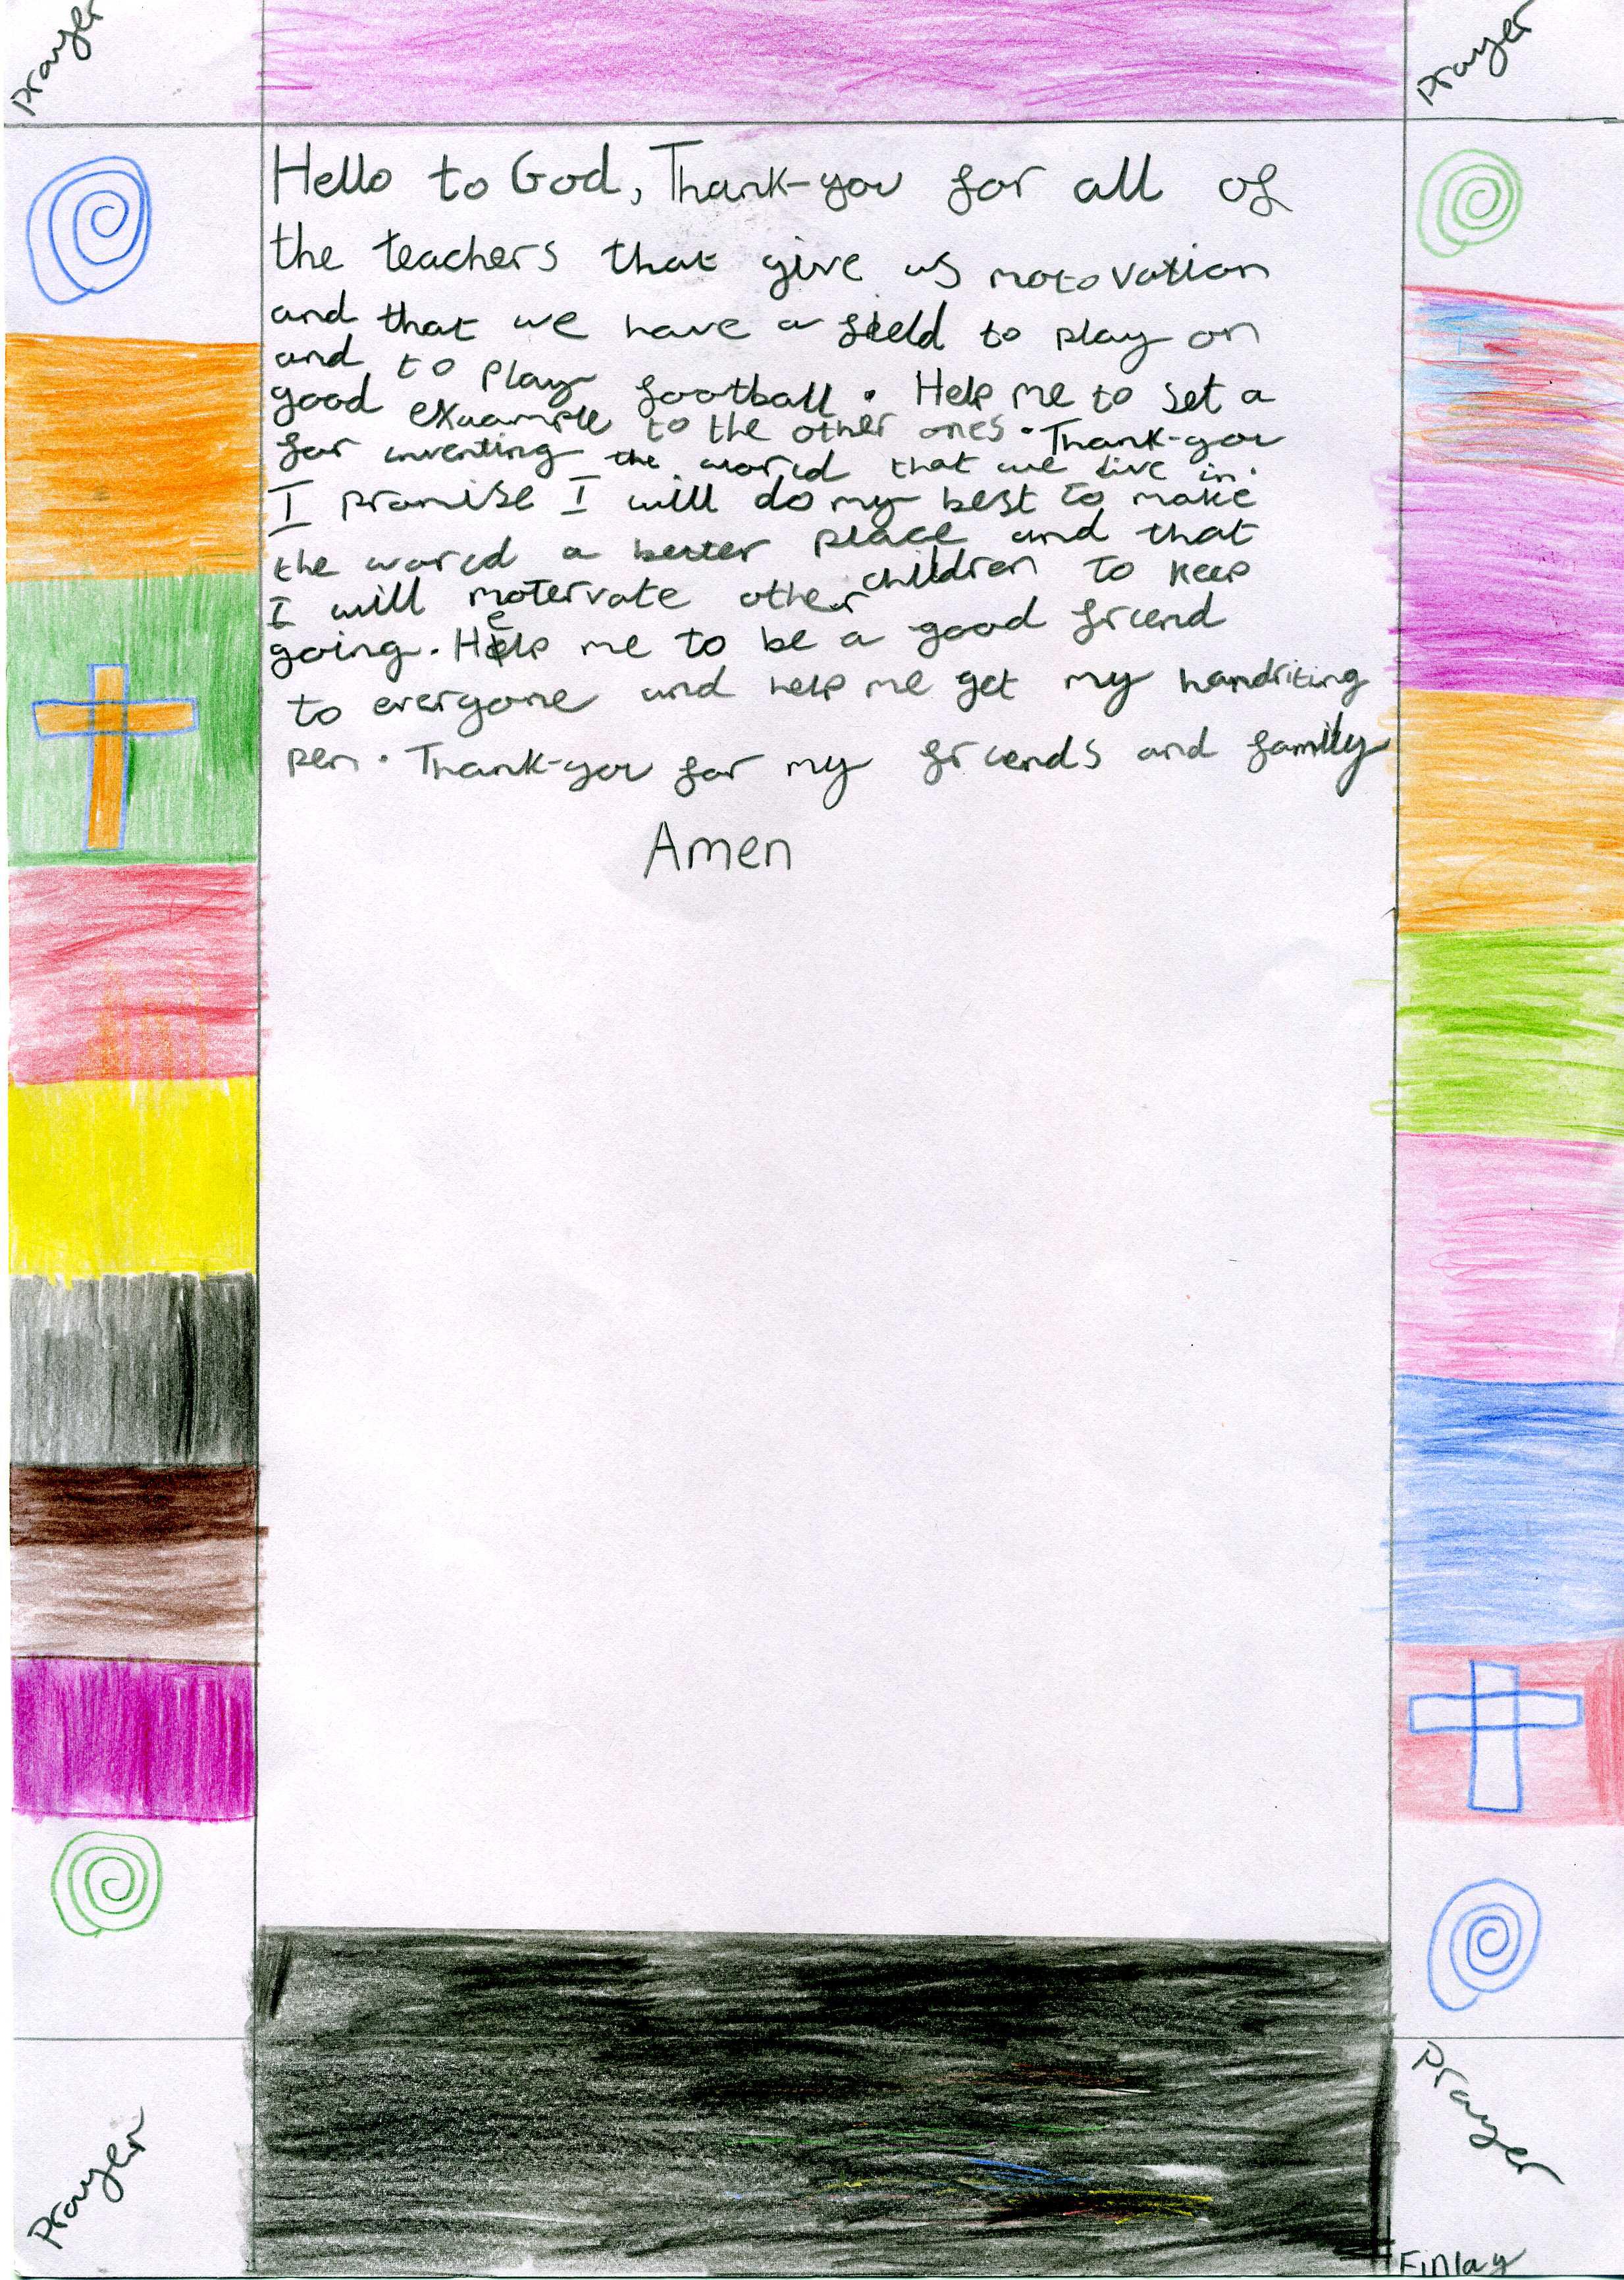 Prayer
Prayer
Hello to God, Thank-you for all of
the teachers that give us motovation
and that we have a field to play on
and to play football. Help me to set a
good exaample to the other ones. Thank-you
for inventing the world that we live in.
I promise I will do my best to make
the world a better place and that
I will motervate other children to keep
going. Help me to be a good friend
to everyone and help me get my handriting
pen. Thank-you for my friends and family
Amen
Prayer
Prayer
Finlay